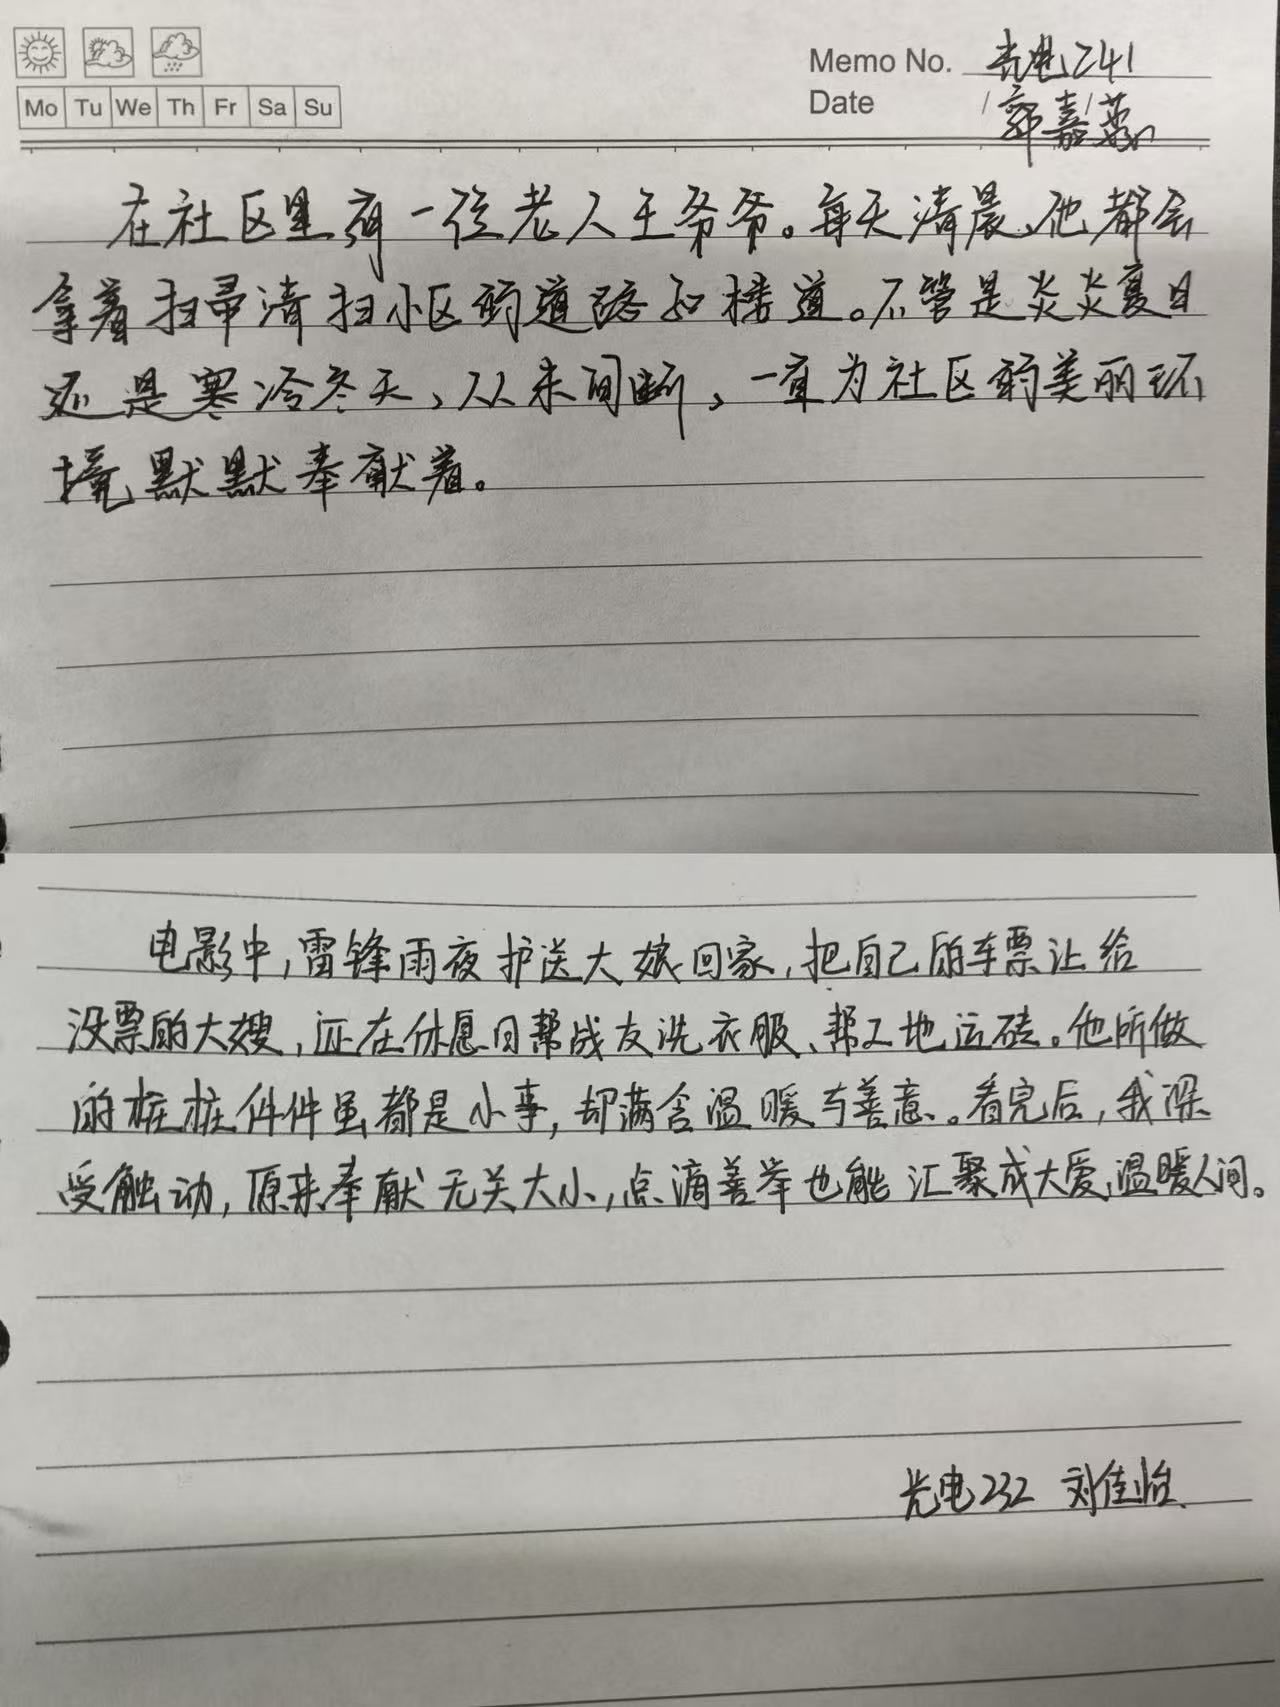 Memo No. 光电241
Mo Tu We Th Fr Sa Su
Date / /
郭嘉
在社区里有一位老人王爷爷。每天清晨、他都会
拿着扫帚清扫小区的道路和楼道。不管是炎炎夏日
还是寒冷冬天,从未间断,一直为社区的美丽环
境默默奉献着。
电影中,雷锋雨夜护送大娘回家,把自己的车票让给
没票的大嫂,还在休息日帮战友洗衣服、帮工地运砖。他所做
的桩桩件件虽都是小事,却满含温暖与善意。看完后,我深
受触动,原来奉献无关大小,点滴善举也能汇聚成大爱,温暖人间。
光电232 刘佳怡